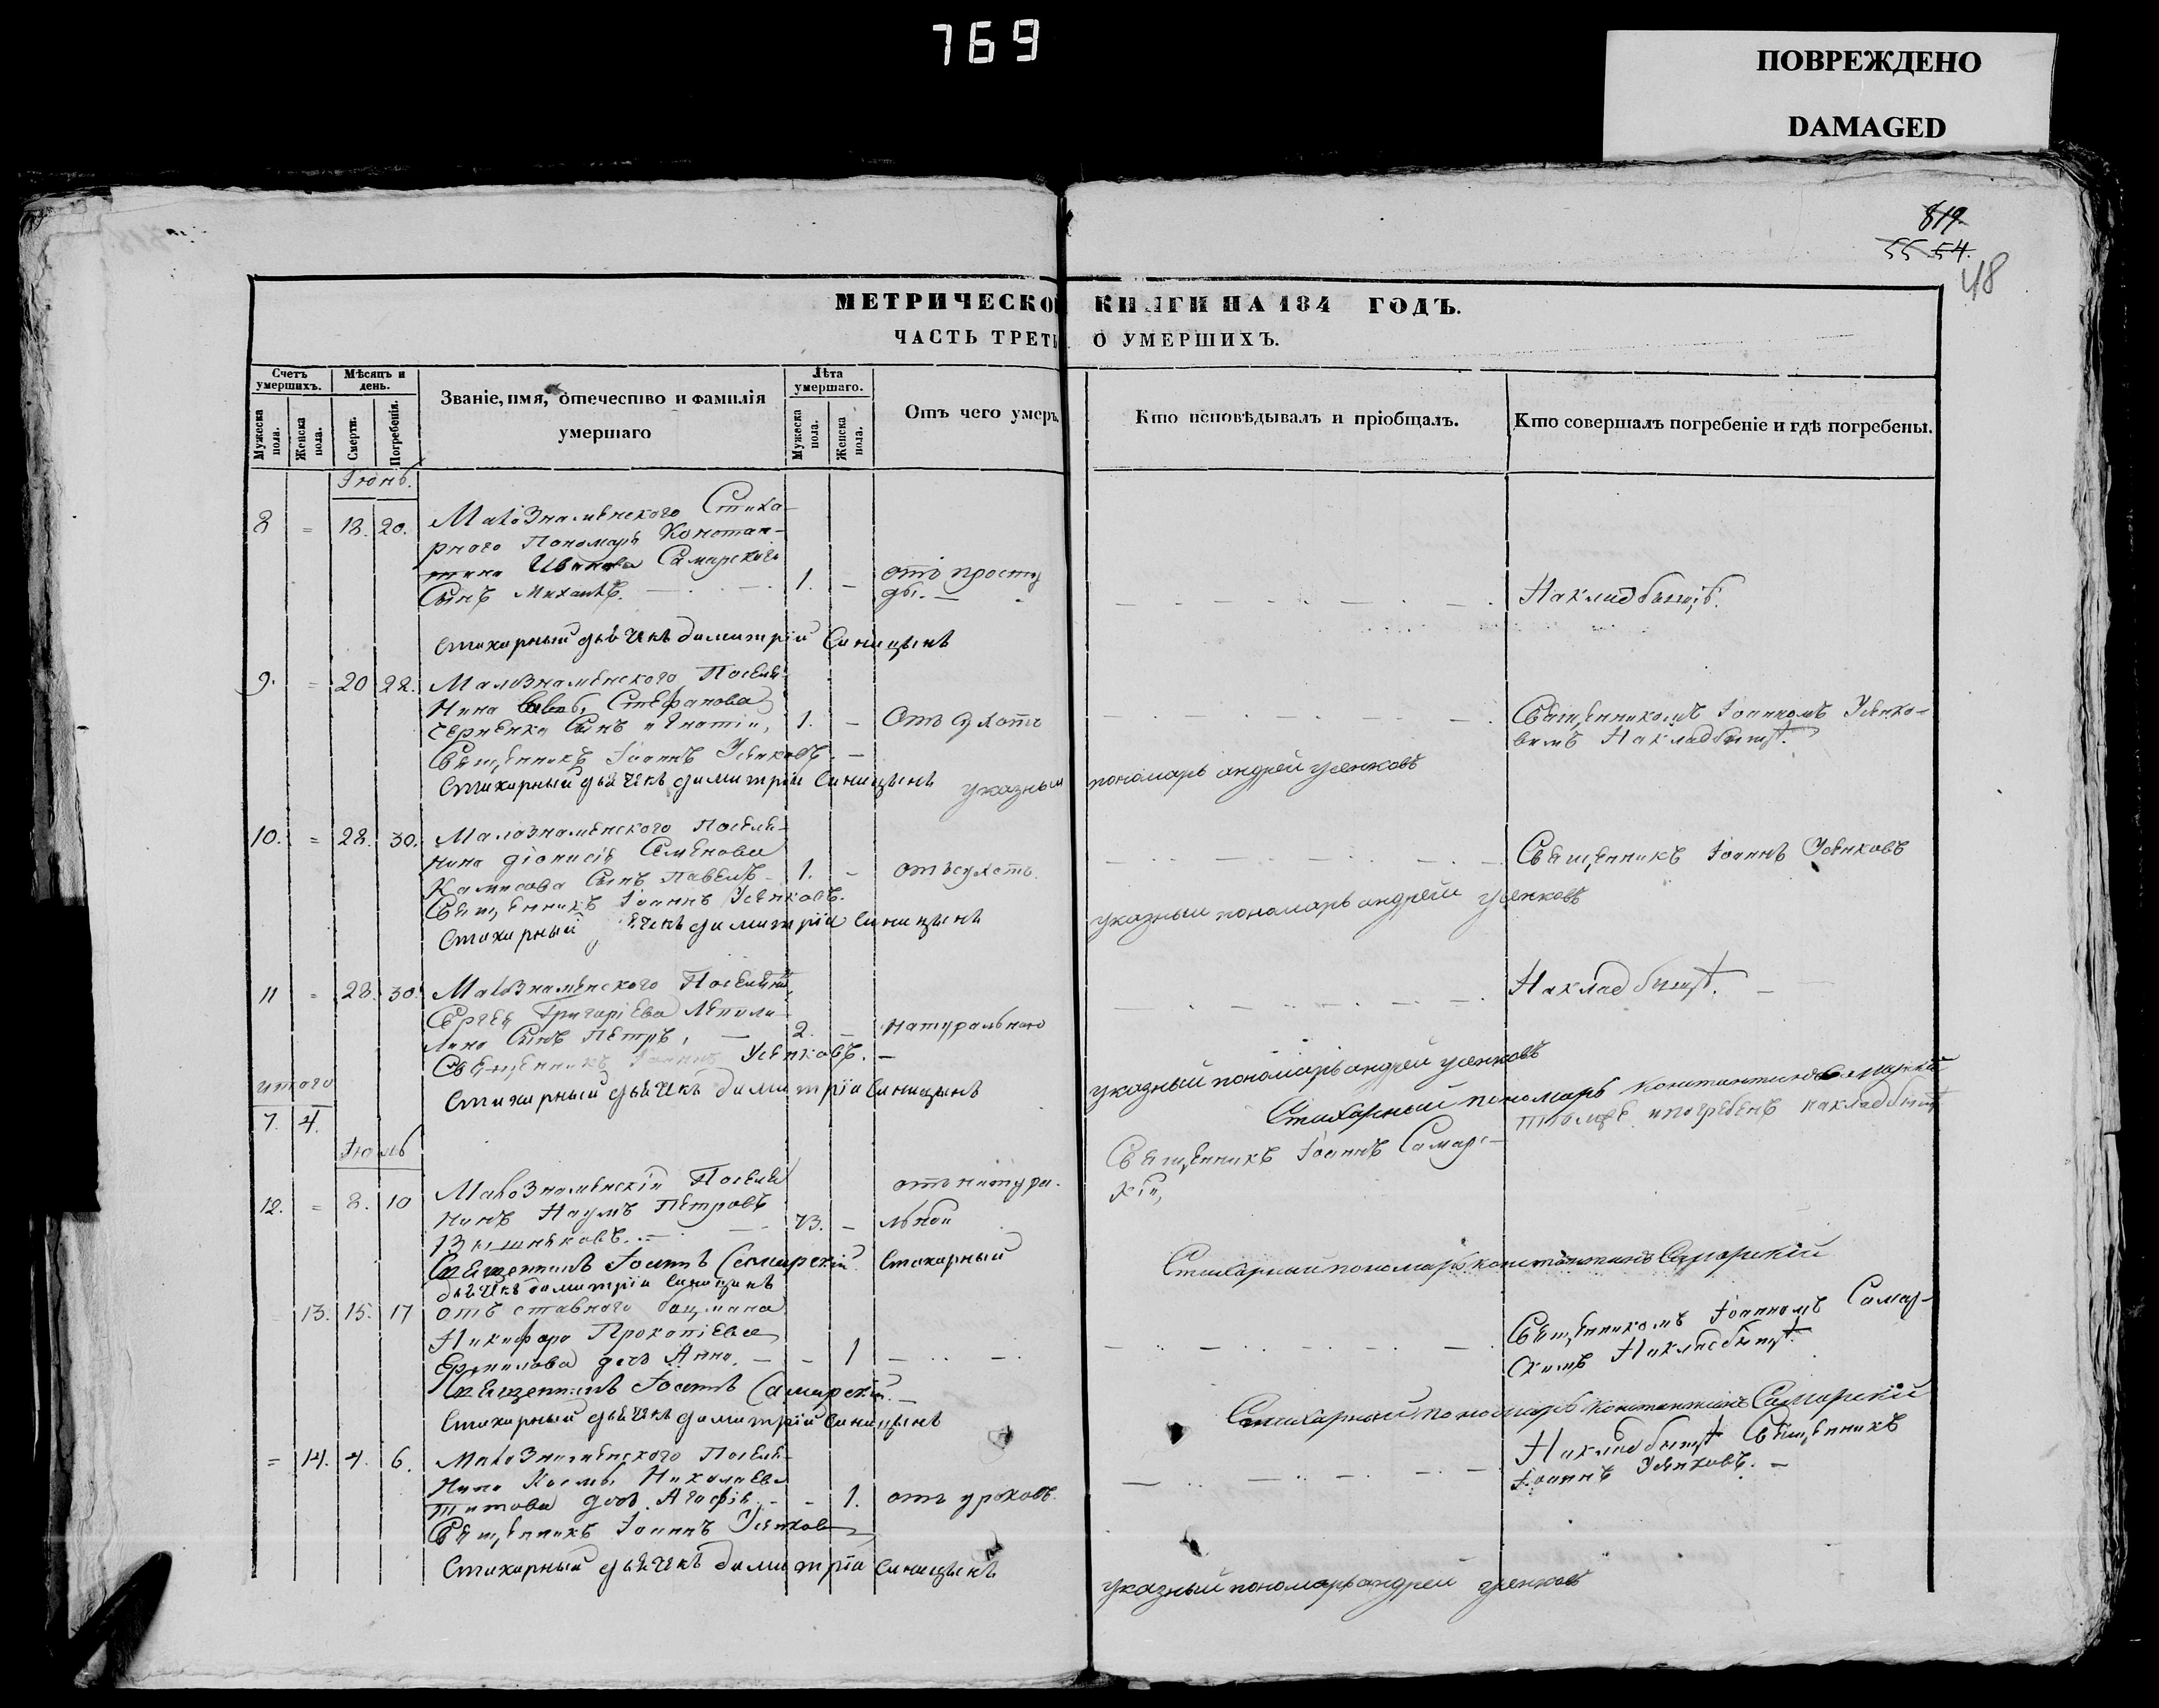 769
ПОВРЕЖДЕНО
DAMAGED
819.
55 54.
48
МЕТРИЧЕСКО КНИГИ НА 184 ГОДЪ.
ЧАСТЬ ТРЕТЬ О УМЕРШИХЪ.
Счетъ умершихъ.
Мѣсяцъ и день.
Званіе, имя, отечество и фамилія умершаго
Лѣта умершаго.
Отъ чего умеръ.
Кто исповѣдывалъ и пріобщалъ.
Кто совершалъ погребеніе и гдѣ погребены.
Мужеска пола.
Женска пола.
Смерти.
Погребенія.
Мужеска пола.
Женска пола.
Іюнь.
8 = 18. 20. Малознаменского Стиха-
рного Пономаря Констан-
тина Иванова Самарского
Сынъ Михаилъ. 1. – отъ просту
ды. – Накладбищѣ.
Стихарный дьячекъ димитрій Синицынъ
9. = 20 22. Малознаменского Поселя-
нина Стефанова
Сынъ Игнатій, 1. – Отъ
Священникомъ Іоанномъ Усенко-
вымъ Накладбищѣ.
Священникъ Іоаннъ Усенковъ. –
Стихарный дьячекъ димитрій Синицынъ указный пономарь андрей усенковъ
10. = 28. 30. Малознаменского Поселя-
нина Діонисія Семенова
Сынъ Павелъ – 1. –
Священникъ Іоаннъ Усенковъ
Священникъ Іоаннъ Усенковъ.
Стихарный димитрій Синицынъ указный пономарь андрей усенковъ
11 = 28. 30. Малознаменского Поселянина
Сергея Григоріева
Сынъ Петръ, – 2. – натуральною
Накладбищѣ. –
Священникъ Іоаннъ Усенковъ. –
итого
Стихарный дьячекъ димитрій Синицынъ указный пономарь андрей усенковъ
7. 4. Стихарный пономарь Константинъ Самарскій
Іюль
12. = 8. 10 Малознаменскій Поселя-
нинъ Наумъ Петровъ
73. – отъ натура-
льной
Священникъ Іоаннъ Самарс-
кій,
тѣломъ и погребенъ накладбищѣ
Священникъ Іоаннъ Самарскій Стихарный
дьячекъ димитрій Синицынъ
Стихарный пономарь константинъ Самарскій
13. 15. 17 отъставного боцмана
Никифора Прокопіева
Ермилова дочь Анна. – – 1 –
Священникомъ Іоанномъ Самар-
скимъ Накладбищѣ.
Священникъ Іоаннъ Самарскій. –
Стихарный дьячекъ димитрій Синицынъ Стихарный пономарь Константинъ Самарскій
= 14. 4. 6. Малознаменского Поселя-
нина Космы Николаева
Титова дочь Агафія. – – 1. отъ уроковъ.
Накладбищѣ Священникъ
Іоаннъ Усенковъ. –
Священникъ Іоаннъ Усенковъ
Стихарный дьячекъ димитрій Синицынъ
указный пономарь андрей усенковъ